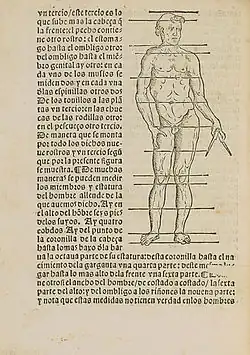 vn tercio/este tercio es lo
que sube mas la cabeça q̃
la frente: el pecho contie-
ne otro rostro: el estoma-
go hasta el ombligo otro:
del ombligo hasta el miẽ-
bro genital ay otro: en ca
da vno de los muslos se
miden dos y en cada vna
dlas espinillas otros dos
De los touillos a las plã
tas vn tercio: en las chue
cas de las rodillas otro:
en el pescueço otro tercio.
De manera que se monta
por todo los dichos nue-
ue rostros y vn tercio segũ
que por la presente figura
se muestra. ¶ De muchas
maneras se pueden medir
los miembros y estatura
del hombre allende de la
que auemos dicho. Ay en
el alto del hõbre seys pie-
delos suyos. Ay quatro
cobdos. Ay del punto de
la coronilla de la cabeça
hasta lo mas baxo dla bar
ua la octaua parte de su estatura: desta coronilla hasta el na
cimiento dela garganta vna quarta parte: deste
gar hasta lo mas alto dela frente vna sexta parte.
ne otrosi el ancho del hombre/de costado a costado/la sexta
parte del alto: y del ombligo a los riñones la nouena parte:
y nota que estas medidas no tienen verdad en los hombres